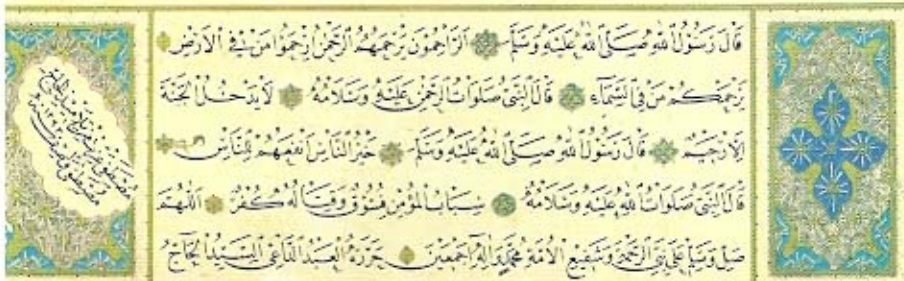 قَالَ رَسُولُ اللهِ صَلَّى اللهُ عَلَيْهِ وَسَلَّمَ اَلرَّاحِمُونَ يَرْحَمُهُمُ الرَّحْمٰنُ اِرْحَمُوا مَنْ فِي الْاَرْضِ
يَرْحَمْكُمْ مَنْ فِي السَّمَاءِ قَالَ النَّبِيُّ صَلَوَاتُ الرَّحْمٰنِ عَلَيْهِ وَسَلَامُهُ لَا يَدْخُلُ الْجَنَّةَ
اِلَّا رَحِيمٌ قَالَ رَسُولُ اللهِ صَلَّى اللهُ عَلَيْهِ وَسَلَّمَ خَيْرُ النَّاسِ اَنْفَعُهُمْ لِلنَّاسِ
قَالَ النَّبِيُّ صَلَوَاتُ اللهِ عَلَيْهِ وَسَلَامُهُ سِبَابُ الْمُؤْمِنِ فُسُوقٌ وَقِتَالُهُ كُفْرٌ اَللّٰهُمَّ
صَلِّ وَسَلِّمْ عَلَى نَبِيِّ الرَّحْمَةِ وَشَفِيعِ الْاُمَّةِ مُحَمَّدٍ وَاٰلِهِ اَجْمَعِينَ حَرَّرَهُ الْعَبْدُ الدَّاعِي السَّيِّدُ الْحَاجُّ